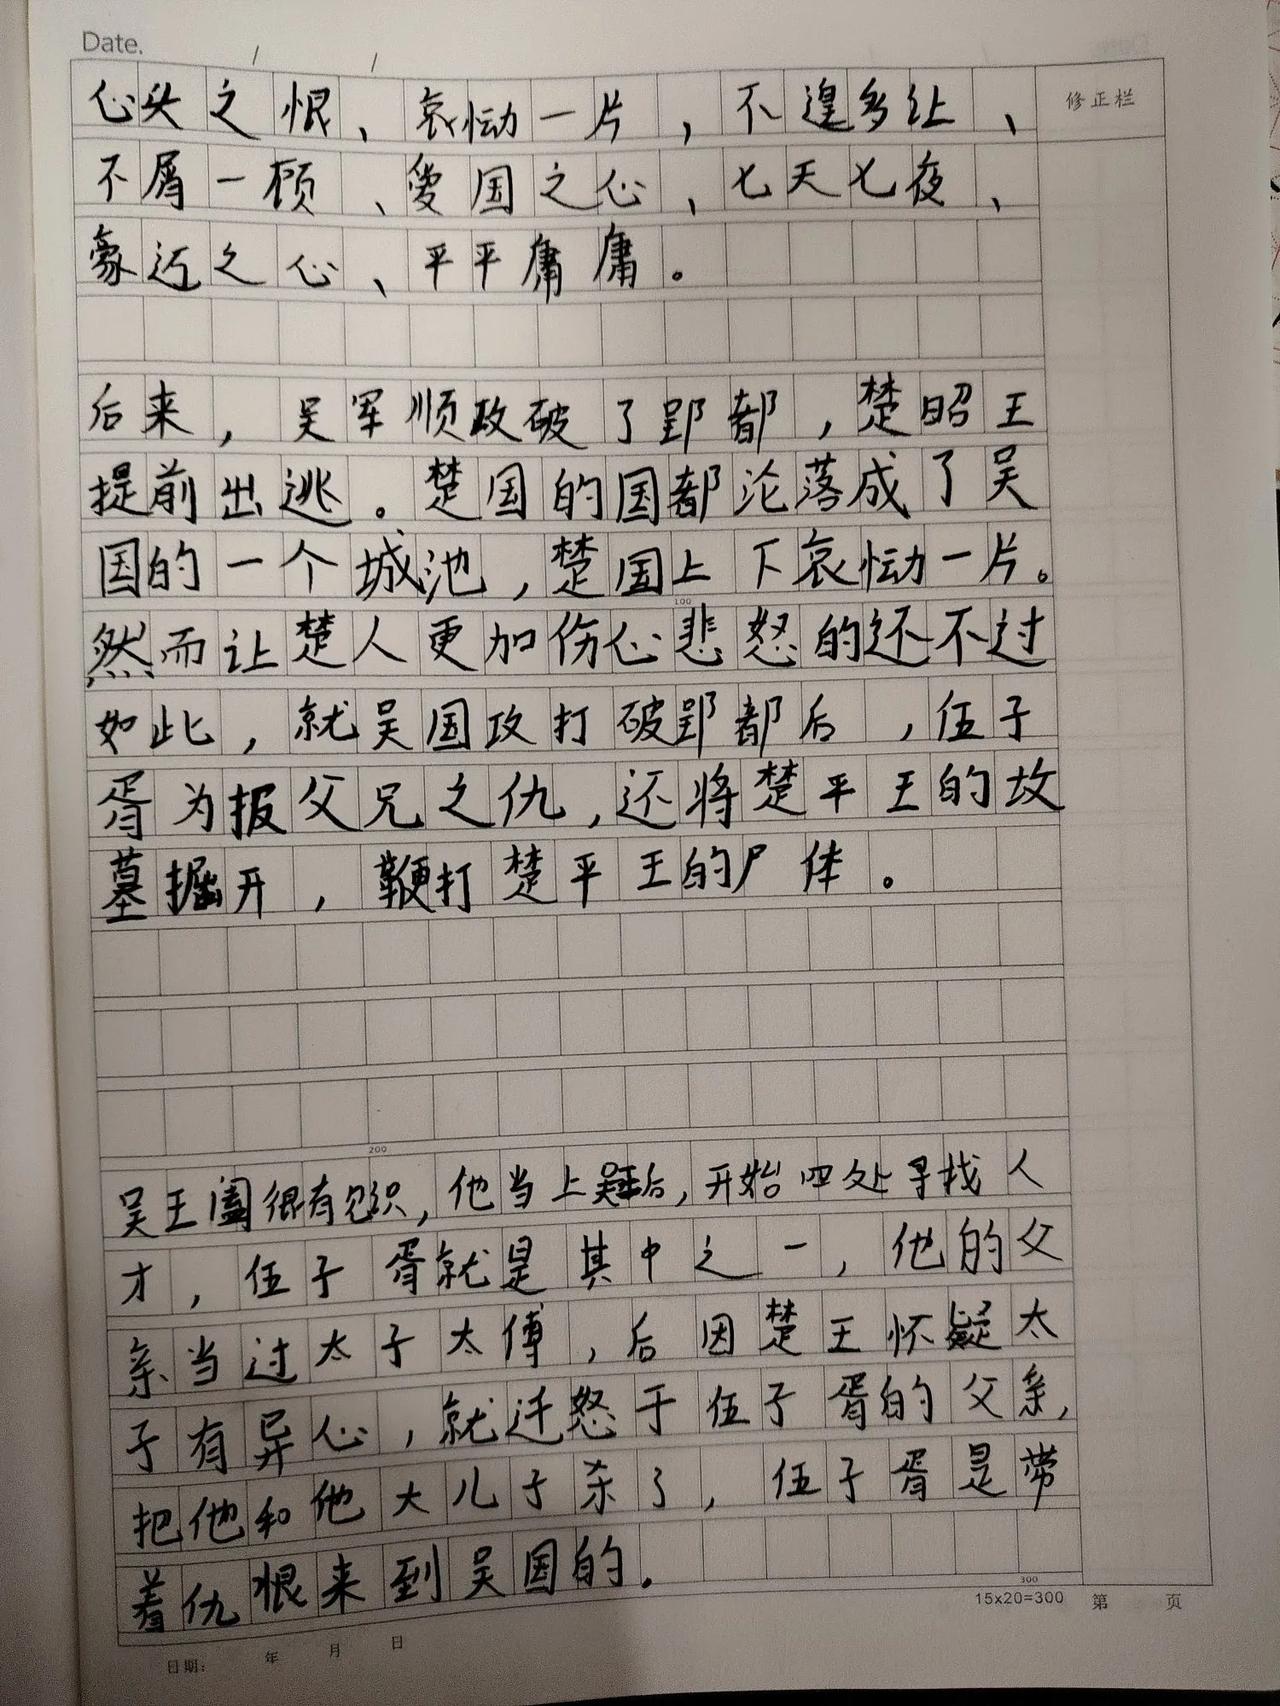 Date. / /
心头之恨、哀恸一片，不遑多让、
修正栏
不屑一顾、爱国之心、七天七夜、
豪迈之心、平平庸庸。
后来，吴军顺政破了郢都，楚昭王
提前出逃。楚国的国都沦落成了吴
国的一个城池，楚国上下哀恸一片。
100
然而让楚人更加伤心悲怒的还不过
如此，就吴国攻打破郢都后，伍子
胥为报父兄之仇，还将楚平王的坟
墓掘开，鞭打楚平王的尸体。
200
吴王阖很有见识，他当上吴王后，开始四处寻找人
才，伍子胥就是其中之一，他的父
亲当过太子太傅，后因楚王怀疑太
子有异心，就迁怒于伍子胥的父亲，
把他和他大儿子杀了，伍子胥是带
着仇恨来到吴国的。
300
15x20=300 第 页
日期： 年 月 日